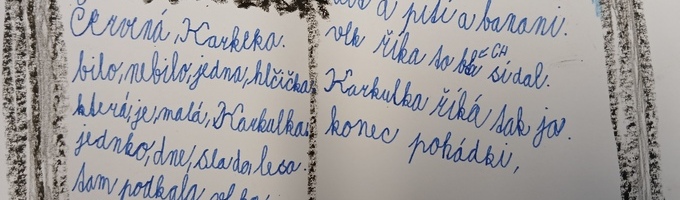 Červená, Karkeka.
bilo, nebilo, jedna, hlčička
která, je, malá, Karkulka.
jednko, dne, sla do lesa.
tam podkala vlka
a piti a banani.
vlk říka to bła sídal.
Karkulka říká tak jo.
konec pohádki,